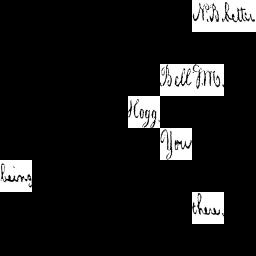 N.B. better
Bell J.M.
Hogg.
You
being
there.